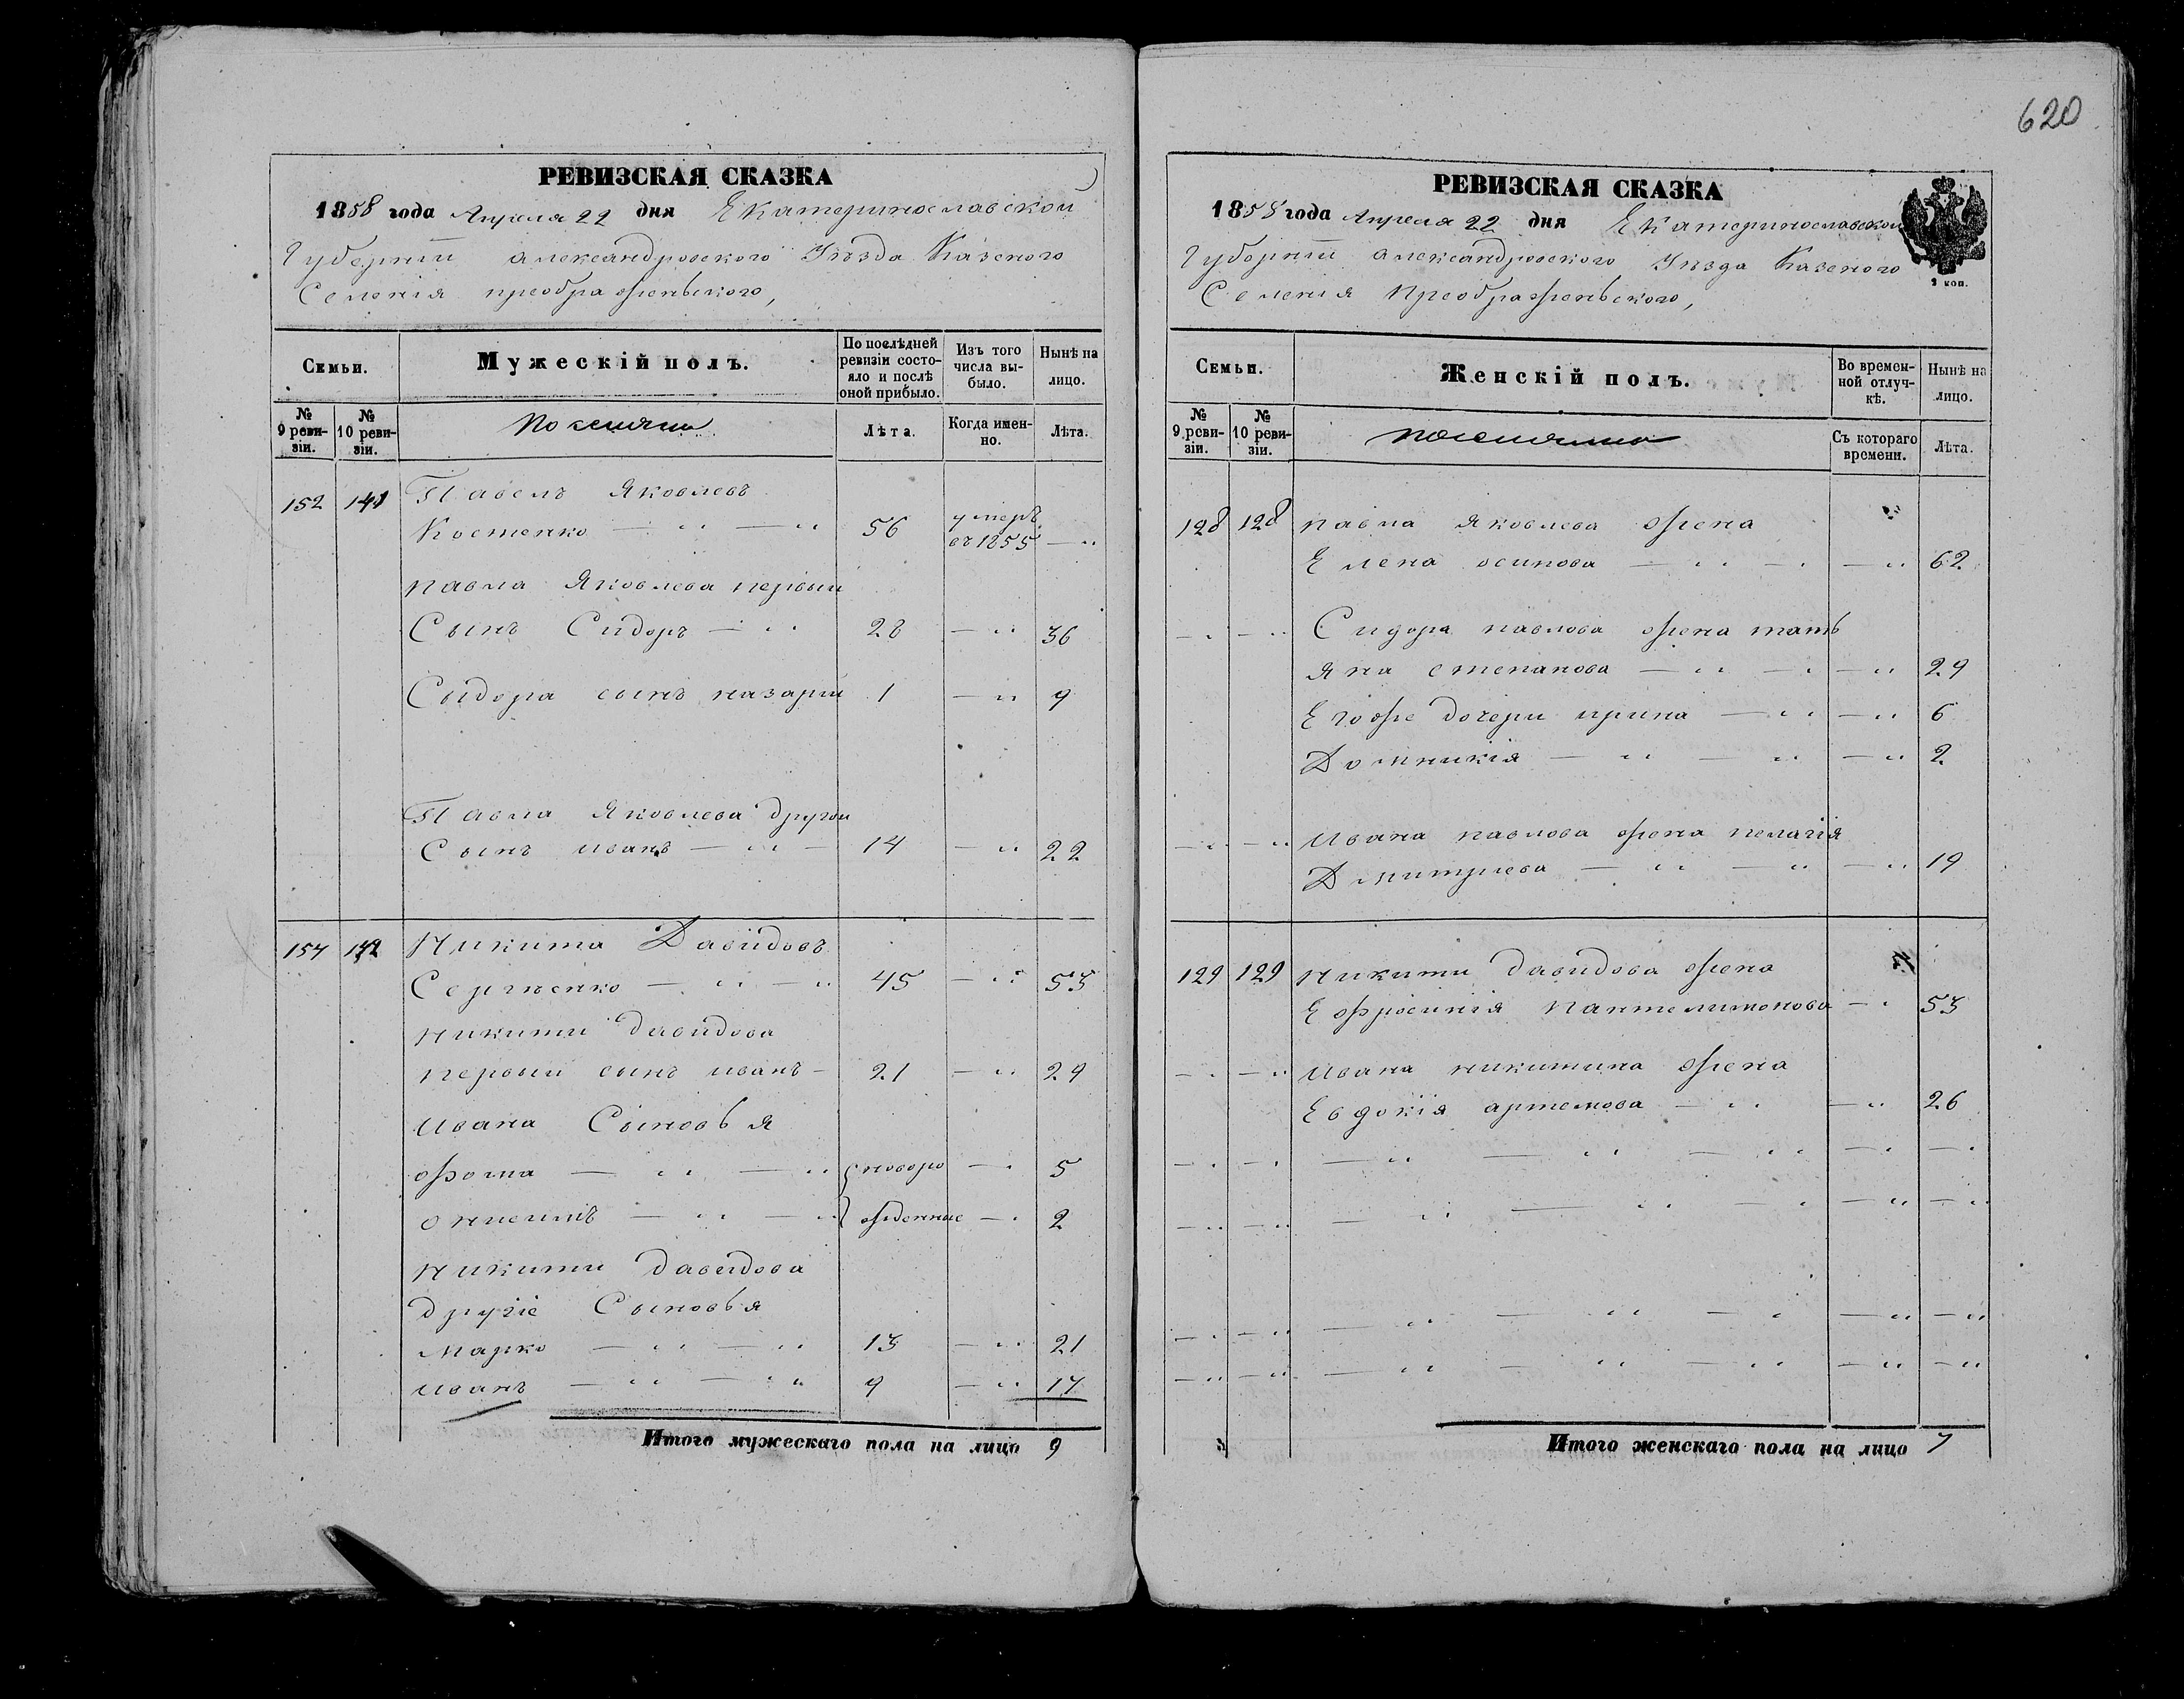 620
РЕВИЗСКАЯ СКАЗКА
1858 года Апреля 22 дня Екатеринославской
Губернiи александровского Уѣзда Казеного
Селенiя преображеньского,
Семьи.
Мужескiй полъ.
По послѣдней ревизiи состояло и послѣ оной прибыло.
Изъ того числа выбыло.
Нынѣ на лицо.
№ 9 ревизiи.
№ 10 ревизiи.
Поселяни
Лѣта.
Когда именно.
Лѣта.
152 141 Павелъ Яковлевъ
Костенко — " — " 56 умеръ въ 1855 — "
павла Яковлева первый
Сынъ Сидоръ — " 28 — " 36
Сидора сынъ назарiй 1 — " 9
Павла Яковлева другой
Сынъ иванъ — " — 14 — " 22
154 142 Никита Давидовъ
Сергѣенко — " — " 45 — " 53
никити давидова
первый сынъ иванъ — 21 — " 29
ивана Сыновья
фома — " — " новоро — " 5
онисимъ — " — " жденние — " 2
никити давидова
другiе Сыновья
марко — " — " 13 — " 21
иванъ — " — " 9 — " 17
Итого мужескаго пола на лицо 9
РЕВИЗСКАЯ СКАЗКА
1858 года Апреля 22 дня Екатеринославской
Губернiи александровского Уѣзда Казеного
Селенiя Преображеньского,
2 коп.
Семьи.
Женскiй полъ.
Во временной отлучкѣ.
Нынѣ на лицо.
№ 9 ревизiи.
№ 10 ревизiи.
поселянина
Съ котораго времени.
Лѣта.
128 128 павла яковлева жена
Елена осипова — " — " — " 62
— " — " Сидора павлова жена тать
яна степанова — " — " — " 29
Егоже дочери ирина — " — " 6
Домникiя — " — " — " 2
— " — " ивана павлова жена пелагiя
Дмитриева — " — " — " 19
129 129 никити давидова жена
Ефросинiя пантелимонова — " 53
— " — " ивана никитина жена
Евдокiя артемова — " — " 26
— " — " — " — " — " — " — "
— " — " — " — " — " — " — "
— " — " — " — " — " — " — "
— " — " — " — " — " — " — "
Итого женскаго пола на лицо 7